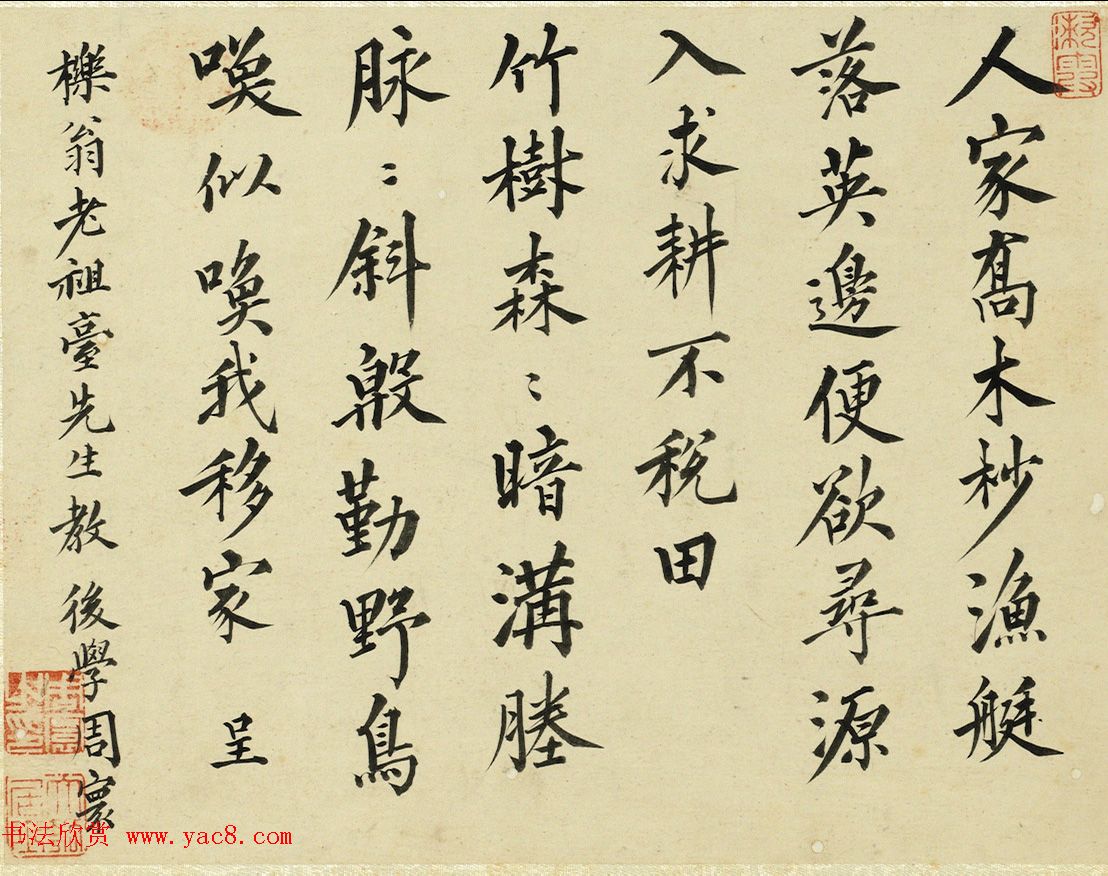 人家喬木杪漁艇
落英邊便欲尋源
入求耕不稅田
竹樹森〻暗溝塍
脉〻斜殷勤野鳥
喚似喚我移家 呈
櫟翁老祖臺先生教 後學周寰
书法欣赏 www.yac8.com